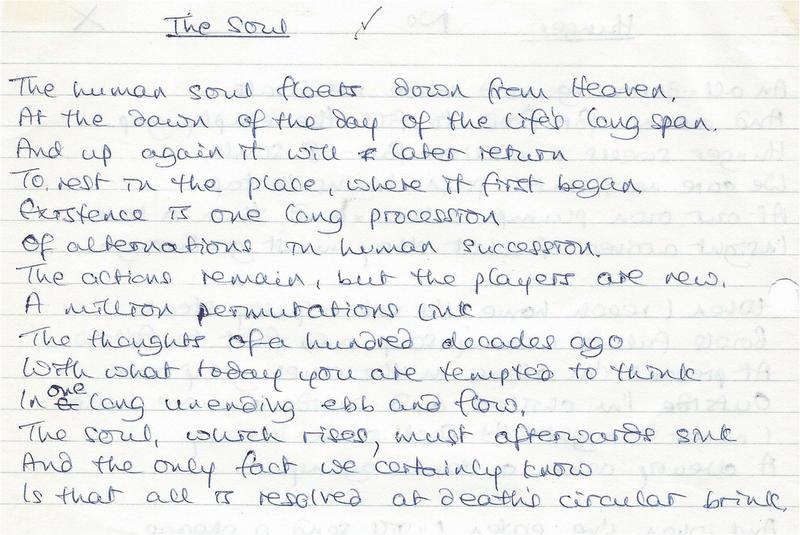 The Soul ✓
The human soul floats down from Heaven,
At the dawn of the day of the life's long span.
And up again it will later return
To rest in the place, where it first began
Existence is one long procession
Of alternations in human succession.
The actions remain, but the players are new,
A million permutations link
The thoughts of a hundred decades ago
With what today you are tempted to think
In one long unending ebb and flow,
The soul, which rises, must afterwards sink
And the only fact we certainly know
Is that all is resolved at death's circular brink.